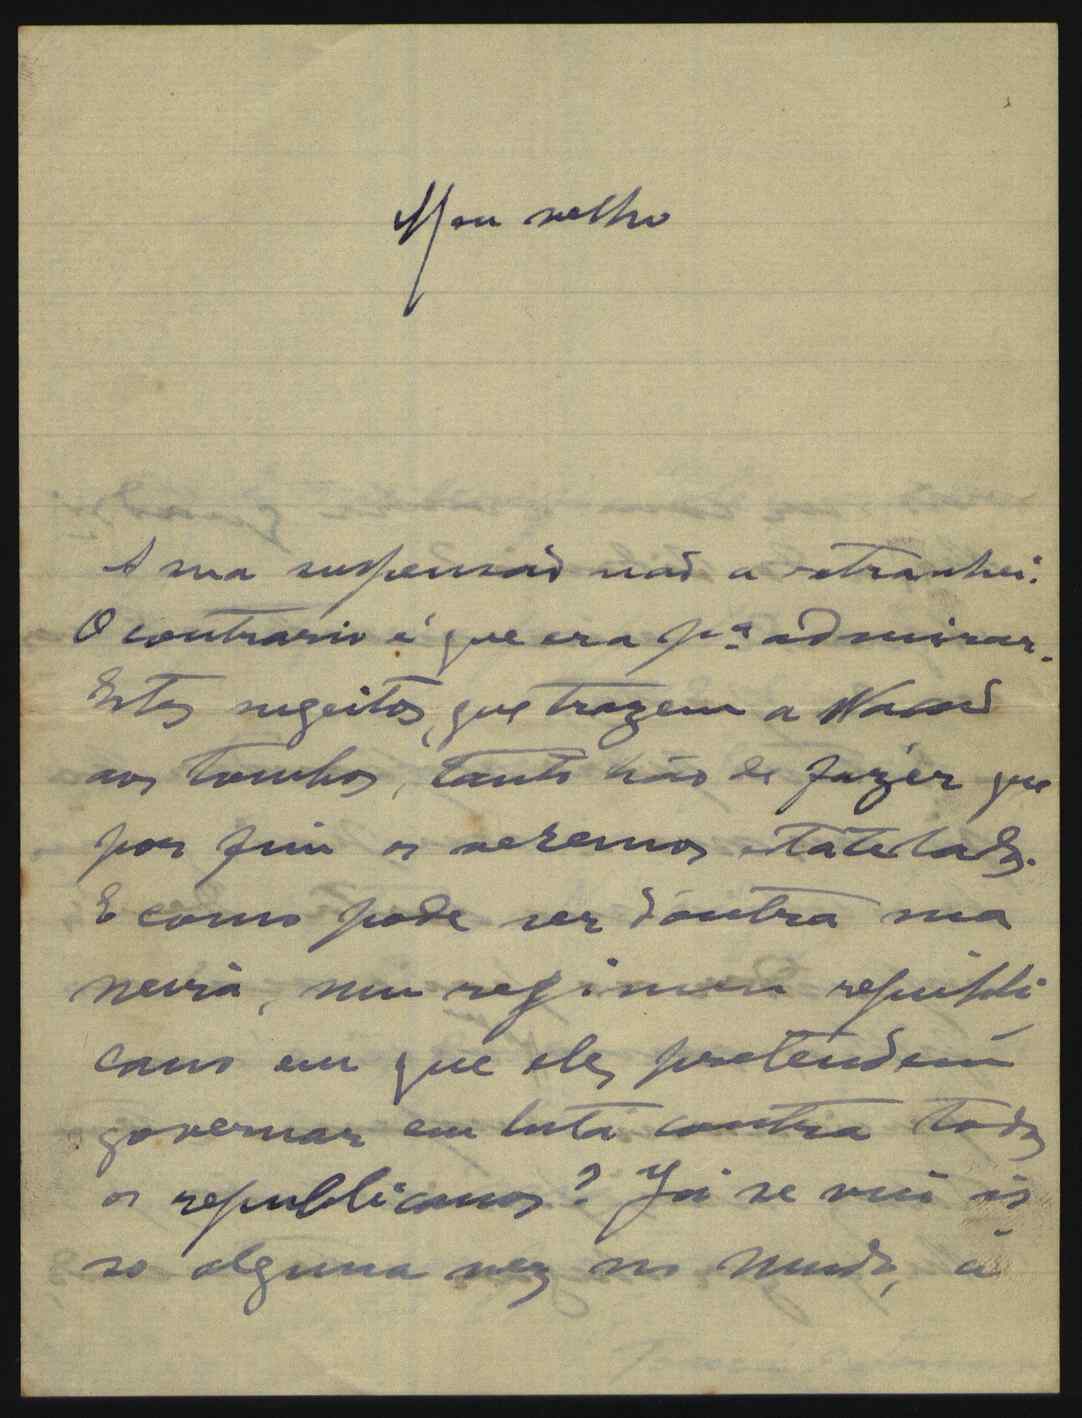 Meu velho
A sua suspensão não a estranhei.
O contrario é que era pª admirar.
Estes sugeitos, que trazem a Nação
aos tombos, tanto hão de fazer que
por fim os veremos estatelados.
E como pode ser d'outra ma
neira, num regimen republi
cano em que eles pretendem
governar em luta contra todos
os republicanos? Já se viu is
so alguma vez no mundo, a